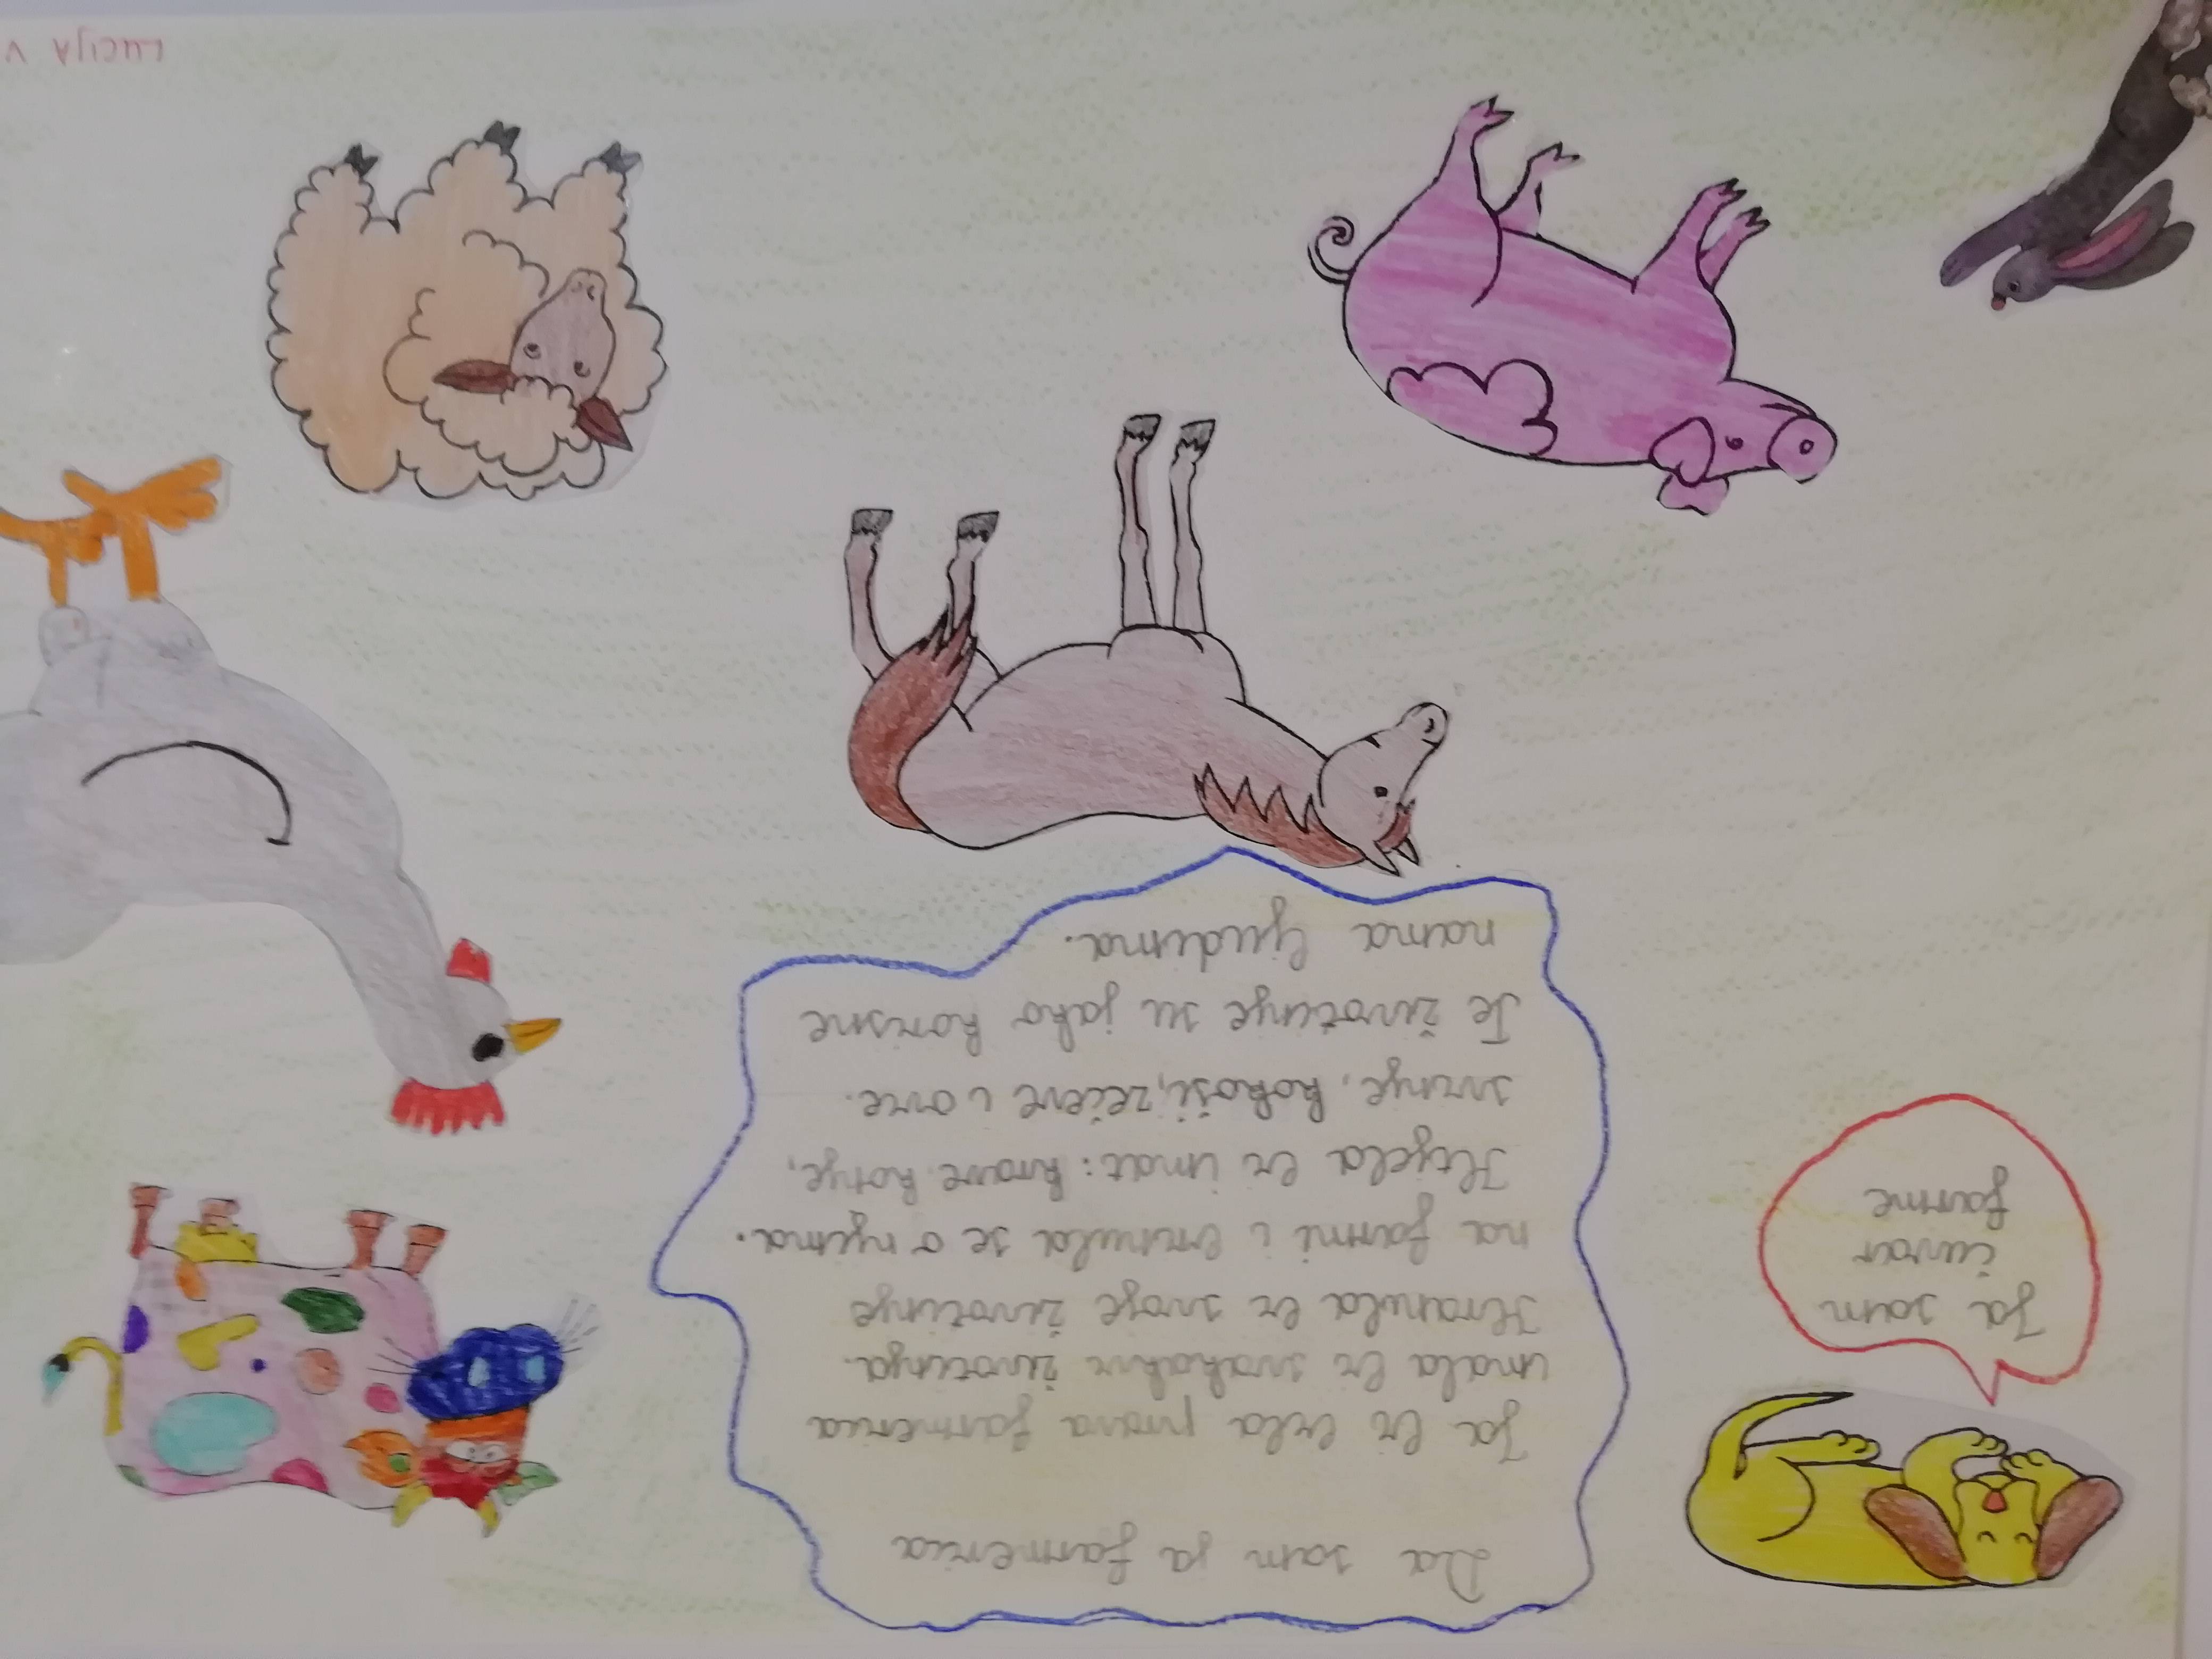 Da sam ja farmerica
Ja bi bila prava farmerica
imala bi svakakve životinja.
Hranila bi svoje životinje
na farmi i brinula se o njima.
Htjela bi imat: krave, konje,
svinje, kokoši, zečeve i ovce.
Te životinje su jako korisne
nama ljudima.
Ja sam
čuvar
farme
LUCIJA V